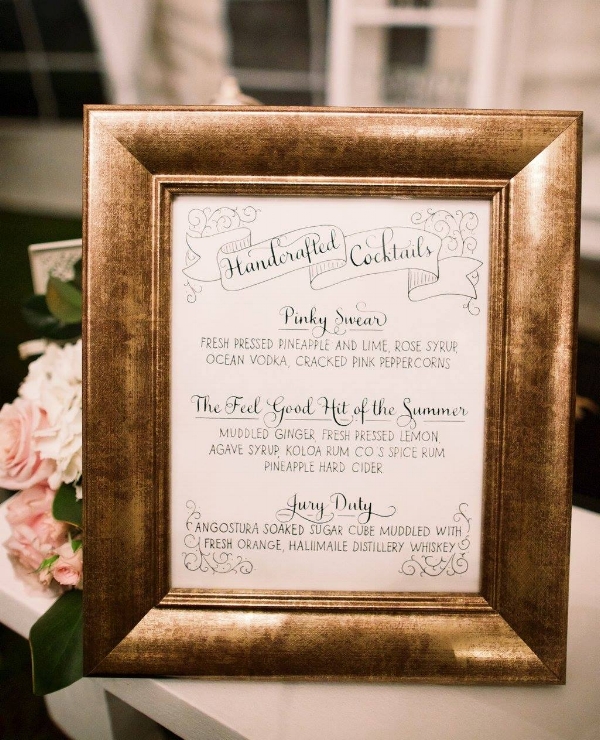 Handcrafted Cocktails
Pinky Swear
FRESH PRESSED PINEAPPLE AND LIME, ROSE SYRUP,
OCEAN VODKA, CRACKED PINK PEPPERCORNS
The Feel Good Hit of the Summer
MUDDLED GINGER, FRESH PRESSED LEMON,
AGAVE SYRUP, KOLOA RUM CO S SPICE RUM
PINEAPPLE HARD CIDER
Jury Duty
ANGOSTURA SOAKED SUGAR CUBE MUDDLED WITH
FRESH ORANGE, HALIIMAILE DISTILLERY WHISKEY